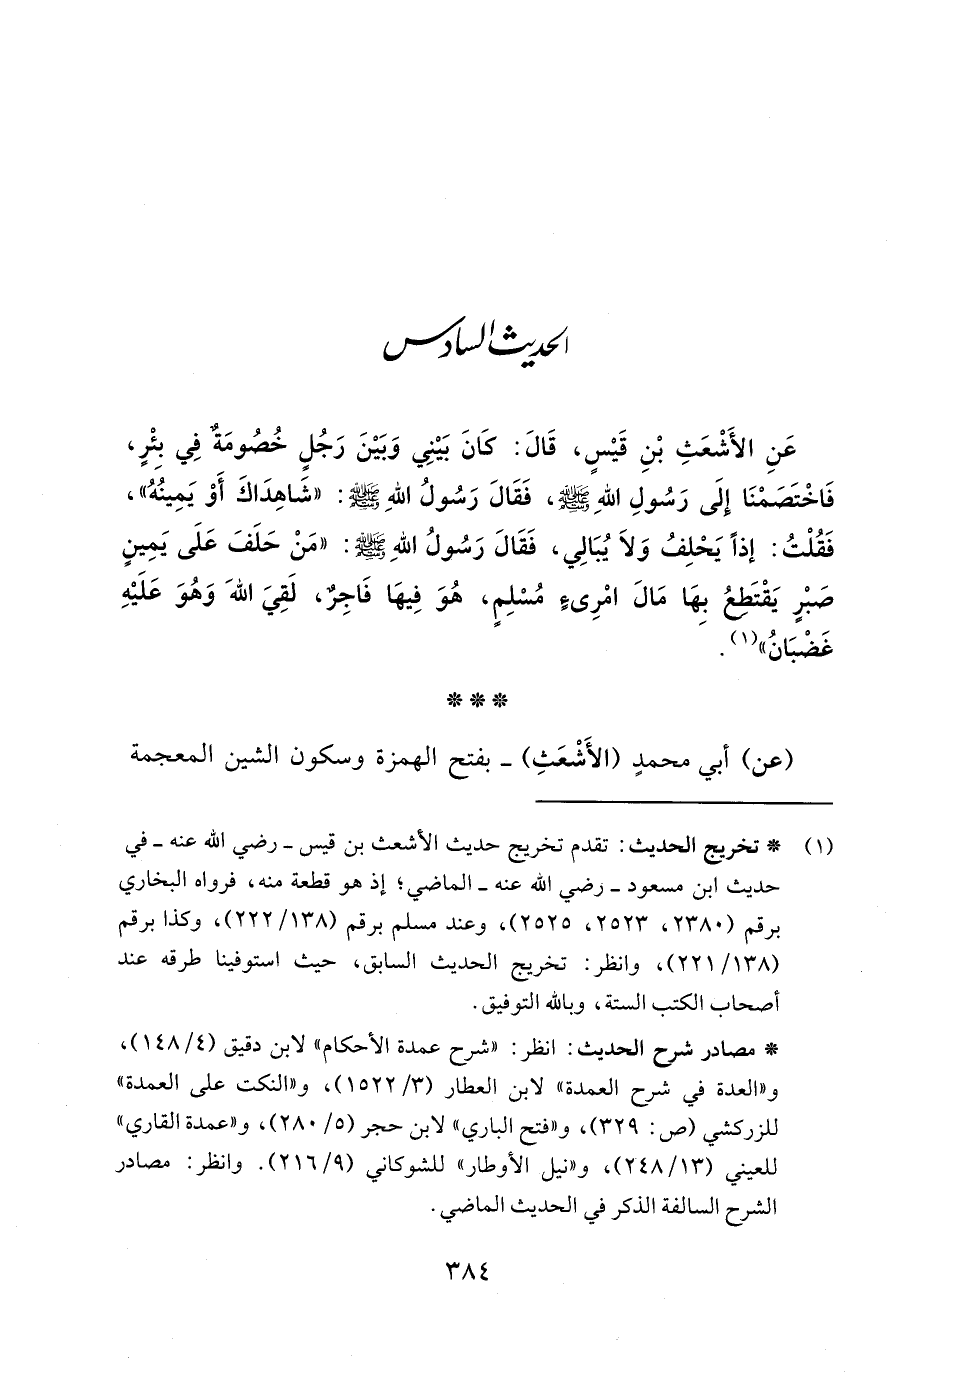 الحديث السادس
عَنِ الأَشْعَثِ بْنِ قَيْسٍ، قَالَ: كَانَ بَيْنِي وَبَيْنَ رَجُلٍ خُصُومَةٌ فِي بِئْرٍ،
فَاخْتَصَمْنَا إِلَى رَسُولِ اللهِ ﷺ، فَقَالَ رَسُولُ اللهِ ﷺ: «شَاهِدَاكَ أَوْ يَمِينُهُ»،
فَقُلْتُ: إِذاً يَحْلِفُ وَلاَ يُبَالِي، فَقَالَ رَسُولُ اللهِ ﷺ: «مَنْ حَلَفَ عَلَى يَمِينٍ
صَبْرٍ يَقْتَطِعُ بِهَا مَالَ امْرِىءٍ مُسْلِمٍ، هُوَ فِيهَا فَاجِرٌ، لَقِيَ اللهَ وَهُوَ عَلَيْهِ
غَضْبَانُ»(١).
* * *
(عن) أبي محمدٍ (الأَشْعَثِ) ـ بفتح الهمزة وسكون الشين المعجمة
(١) * تخريج الحديث: تقدم تخريج حديث الأشعث بن قيس ـ رضي الله عنه ـ في
حديث ابن مسعود ـ رضي الله عنه ـ الماضي؛ إذ هو قطعة منه، فرواه البخاري
برقم (٢٣٨٠، ٢٥٢٣، ٢٥٢٥)، وعند مسلم برقم (١٣٨/ ٢٢٢)، وكذا برقم
(١٣٨/ ٢٢١)، وانظر: تخريج الحديث السابق، حيث استوفينا طرقه عند
أصحاب الكتب الستة، وبالله التوفيق.
* مصادر شرح الحديث: انظر: «شرح عمدة الأحكام» لابن دقيق (٤/ ١٤٨)،
و«العدة في شرح العمدة» لابن العطار (٣/ ١٥٢٢)، و«النكت على العمدة»
للزركشي (ص: ٣٢٩)، و«فتح الباري» لابن حجر (٥/ ٢٨٠)، و«عمدة القاري»
للعيني (١٣/ ٢٤٨)، و«نيل الأوطار» للشوكاني (٩/ ٢١٦). وانظر: مصادر
الشرح السالفة الذكر في الحديث الماضي.
٣٨٤